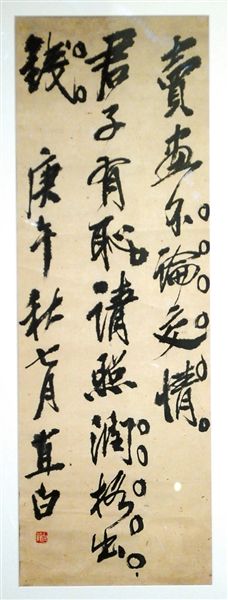 賣畫不論交情。
君子有恥請照潤格出
錢。庚午秋七月直白